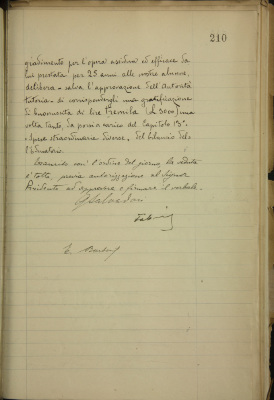 210
gradimento per l'opera assidua ed efficace da
Lui prestata per 25 anni alle nostre alunne,
delibera - salva l'approvazione dell'Autorità
tutoria - di corrispondergli una gratificazione
di buonuscita di lire Tremila (L 3000) una
volta tanto, da porsi a carico del Capitolo 13°
Spese straordinarie diverse, del bilancio del-
l'Educatorio.
Esaurendo così l'ordine del giorno, la seduta
è tolta, previa autorizzazione al Signor
Presidente ad approvare e firmare il verbale.